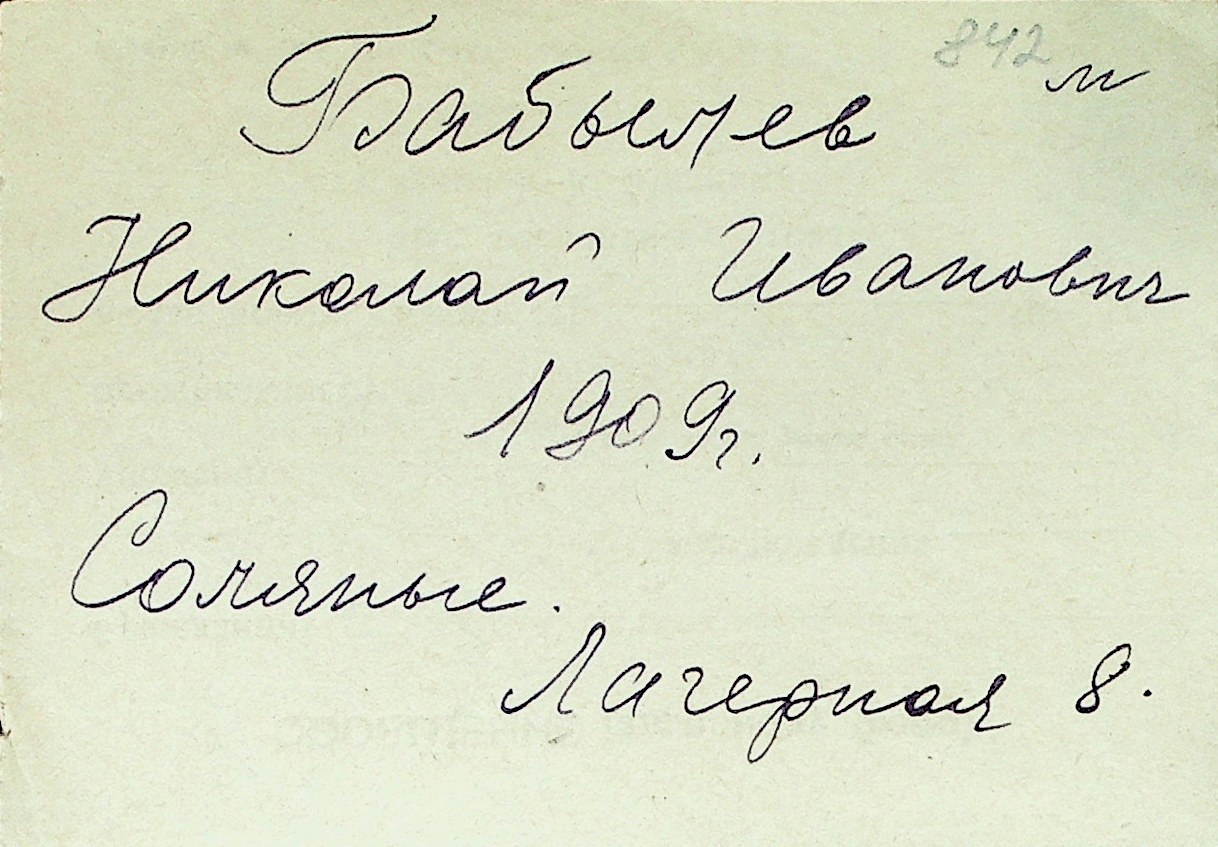 842 м
Бабылев
Николай Иванович
1909г.
Соляные.
Лагерная 8.